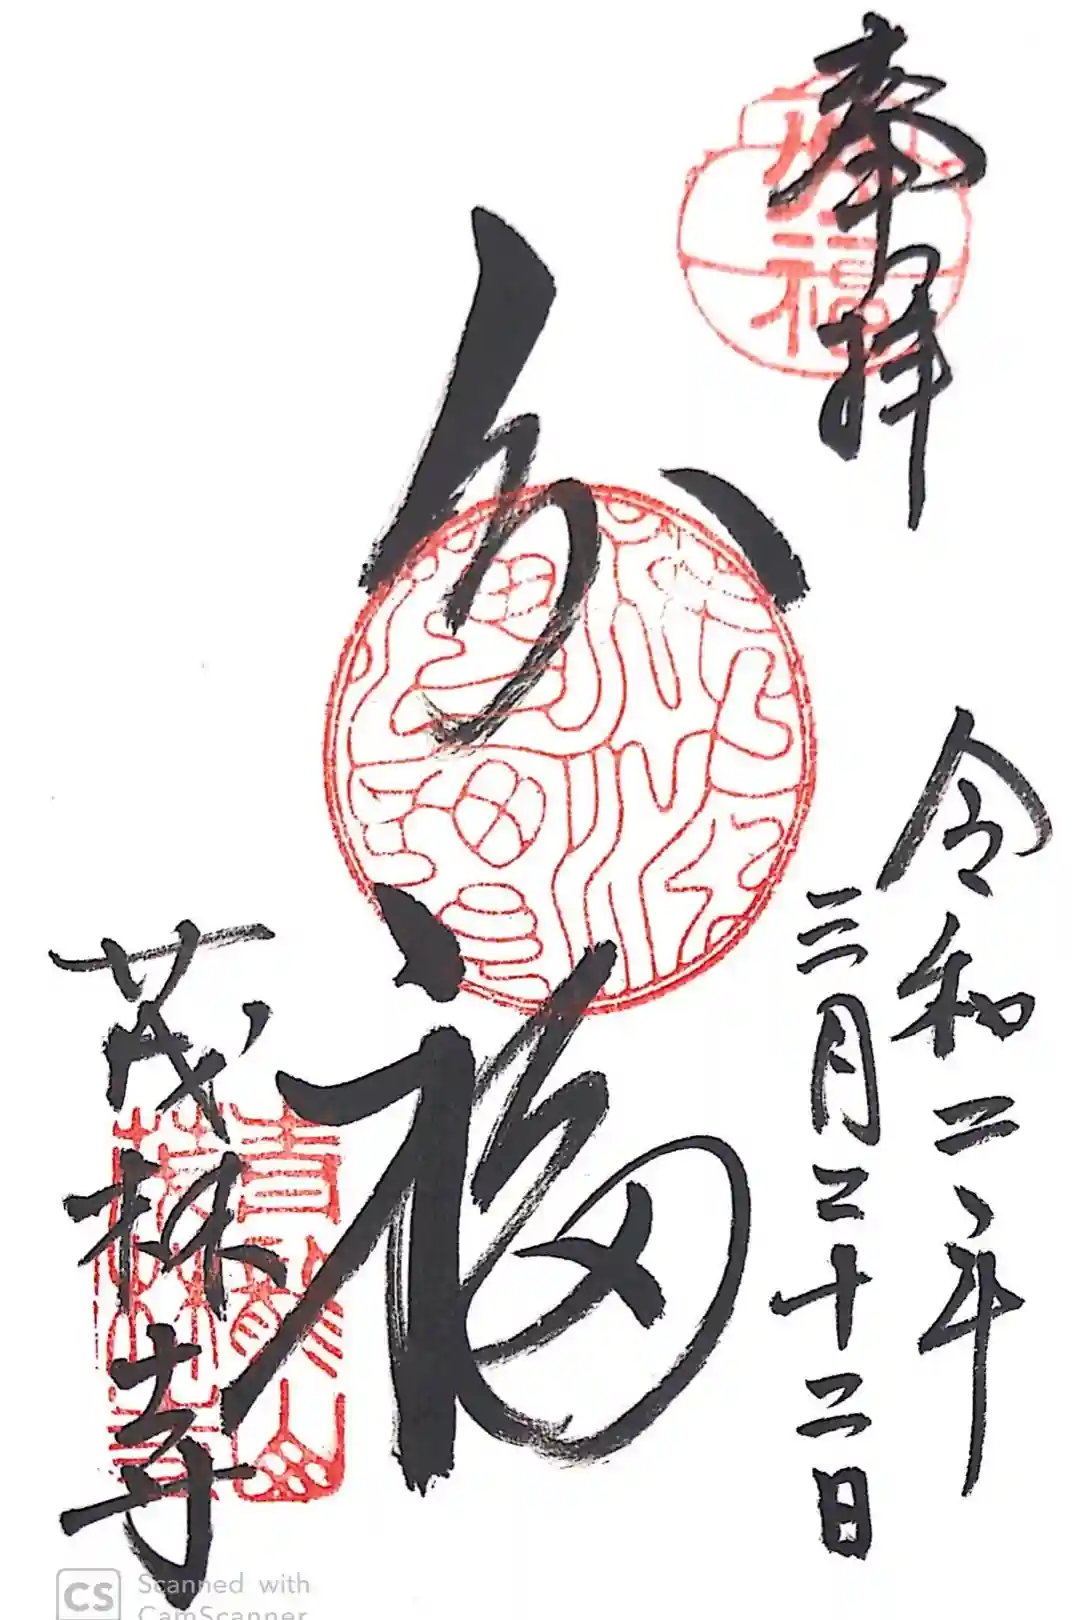 奉拝
令和二年
三月二十二日
分福
茂林寺
青龍山
茂林寺
CS Scanned with
CamScanner